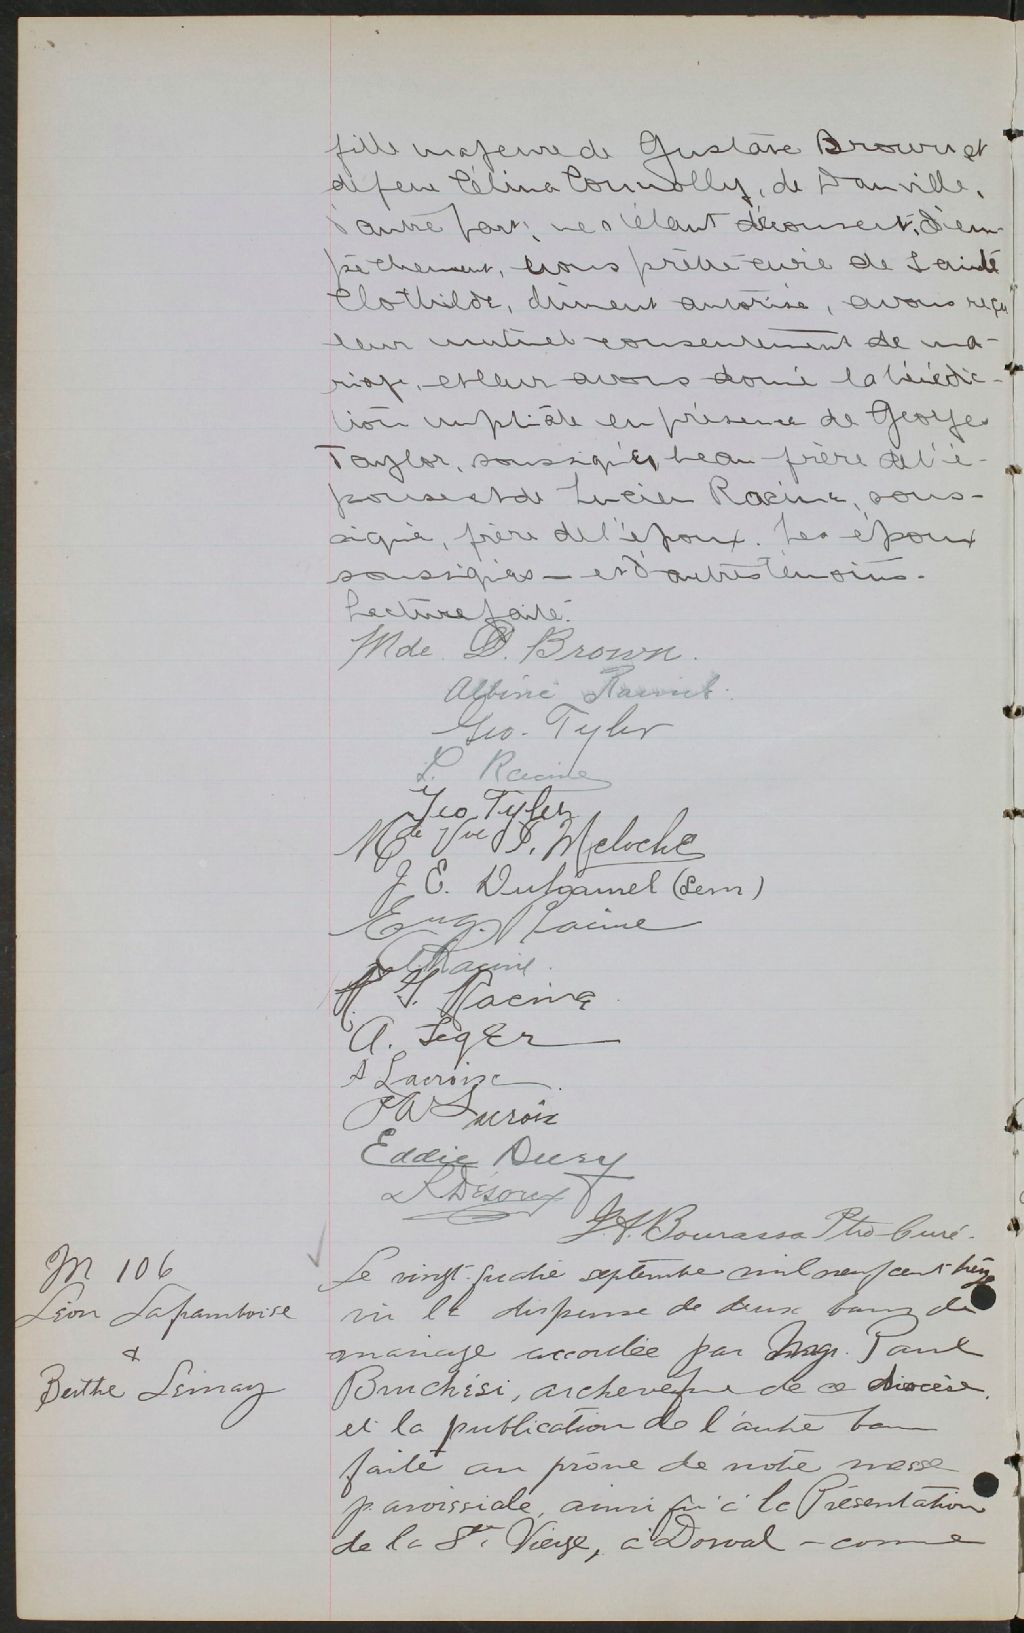 fille majeure de Gustave Brown et
de feue Célina Connolly, de Danville,
d'autre part; ne s'étant découvert d'em-
pêchement, nous prêtre curé de Sainte
Clothilde, dûment autorisé, avons reçu
leur mutuel consentement de ma-
riage, et leur avons donné la bénédic-
tion nuptiale en présence de George
Taylor, soussigné, beau-frère de l'é-
pouse et de Lucien Racine, sous-
signé, frère de l'époux. Les époux
soussignés — et d'autres témoins.
Lecture faite.
Mde D. Brown.
Albine
Geo. Tyler
L. Racine
Geo Tyler
Mde Vve P. Meloche
J E. Duhamel (Sem)
Eug. Racine
Racine.
Racine
A. Leger
Lacroix
Lacroix
Eddie Dury
Désoux
J.A. Bourassa Ptre Curé.
M 106
Léon Laframboise
&
Berthe Lemay
Le vingt-quatre septembre mil neuf cent treize
vu la dispense de deux bans de
mariage accordée par Mgr. Paul
Bruchési, archevêque de ce diocèse,
et la publication de l'autre ban
faite au prône de notre messe
paroissiale, ainsi qu'à la Présentation
de la Ste Vierge, à Dorval - comme